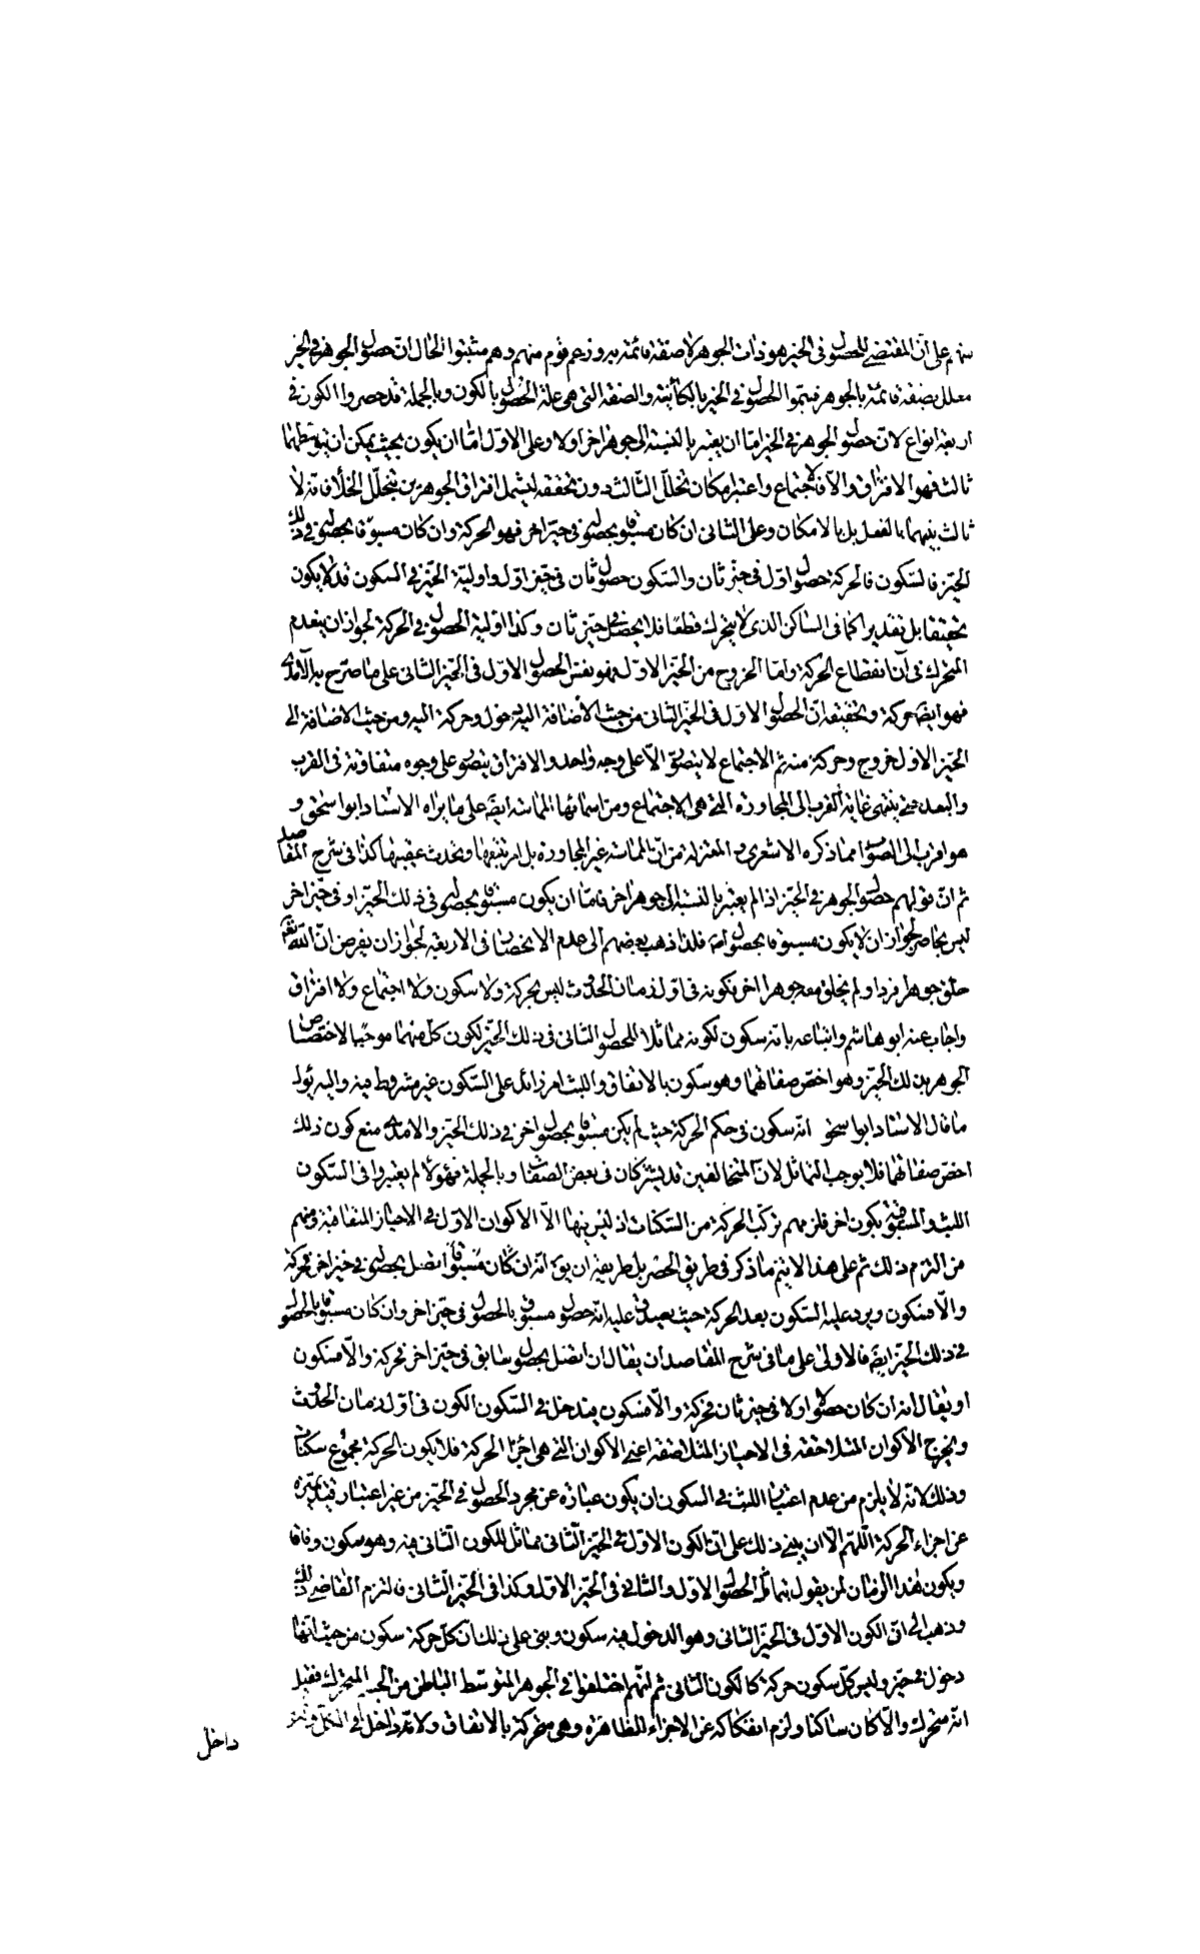 منهم على ان المقتضى للحصول فى الحيز هو ذات الجوهر لا صفة قائمة به وزعم قوم منهم وهم مثبتوا الحال ان حصول الجوهر فى الحيز
معلل بصفة قائمة بالجوهر فسموا الحصول فى الحيز بالكائنية والصفة التى هى علة الحصول بالكون وبالجملة قد حصروا الكون فى
اربعة انواع لان حصول الجوهر فى الحيز اما ان يعتبر بالنسبة الى جوهر اخر اولا وعلى الاول اما ان يكون بحيث يمكن ان يتوسطهما
ثالث فهو الافتراق والا فالاجتماع واعتبر امكان تخلل الثالث دون تحققه ليشمل افتراق الجوهرين بتخلل الخلأ فانه لا
ثالث بينهما بالفعل بل بالامكان وعلى الثانى ان كان مسبوقا بحصوله فى حيز اخر فهو الحركة وان كان مسبوقا بحصوله فى ذلك
الحيز فالسكون فالحركة حصول اول فى حيز ثان والسكون حصول ثان فى حيز اول واولية الحيز فى السكون قد لا يكون
تحقيقا بل تقديرا كما فى الساكن الذى لا يتحرك قطعا فلا يحصل فى حيز ثان وكذا اولية الحصول فى الحركة لجواز ان ينعدم
المتحرك فى آن انقطاع الحركة واما الخروج من الحيز الاول فهو نفس الحصول الاول فى الحيز الثانى على ما صرح به الآمدى
فهو ايضا حركة وتحقيقه ان الحصول الاول فى الحيز الثانى من حيث الاضافة اليه دخول وحركة اليه ومن حيث الاضافة الى
الحيز الاول خروج وحركة منه ثم الاجتماع لا يتصور الا على وجه واحد والافتراق يتصور على وجوه متفاوتة فى القرب
والبعد حتى ينتهى غاية القرب الى المجاورة التى هى الاجتماع ومن اسمائها المماسة ايضا على ما يراه الاستاد ابو اسحق و
هو اقرب الى الصواب مما ذكره الاشعرى والمعتزلة من ان المماسة غير المجاورة بل امر يتبعها ويحدث عقيبها كذا فى شرح المقاصد
ثم ان قولهم حصول الجوهر فى الحيز اذا لم يعتبر بالنسبة الى جوهر اخر فاما ان يكون مسبوقا بحصوله فى ذلك الحيز او فى حيز اخر
ليس بحاصر لجواز ان لا يكون مسبوقا بحصول اصلا فلذا ذهب بعضهم الى عدم الانحصار فى الاربعة لجواز ان يفرض ان الله تعالى
خلق جوهرا فردا ولم يخلق معه جوهرا اخر فكونه فى اول زمان الحدوث ليس بحركة ولا سكون ولا اجتماع ولا افتراق
واجاب عنه ابو هاشم واتباعه بانه سكون لكونه مماثلا للحصول الثانى فى ذلك الحيز لكون كل منهما موجبا لاختصاص
الجوهر بذلك الحيز وهو اخص صفاتهما وهو سكون بالاتفاق واللبث امر زائد على السكون غير مشروط فيه واليه يؤل
ما قال الاستاد ابو اسحق انه سكون فى حكم الحركة حيث لم يكن مسبوقا بحصول اخر فى ذلك الحيز والامدى منع كون ذلك
اخص صفاتهما فلا يوجب التماثل لان المتخالفين قد يشتركان فى بعض الصفات وبالجملة فهؤلاء لم يعتبروا فى السكون
اللبث والمسبوقية بكون اخر فلزمهم تركب الحركة من السكنات اذ ليس فيها الا الاكوان الاول فى الاحياز المتعاقبة ومنهم
من التزم ذلك ثم على هذا لا يتم ما ذكر فى طريق الحصر بل طريقه ان يقال انه ان كان مسبوقا اتصل بحصوله فى حيز اخر فحركة
والا فسكون ويرد عليه السكون بعد الحركة حيث يصدق عليه انه حصول مسبوق بالحصول فى حيز اخر وان كان مسبوقا بالحصول
فى ذلك الحيز ايضا فالاولى على ما فى شرح المقاصد ان يقال ان اتصل بحصول سابق فى حيز اخر فحركة والا فسكون
او يقال انه ان كان حصولا اولا فى حيز ثان فحركة والا فسكون فيدخل فى السكون الكون فى اول زمان الحدوث
ويخرج الاكوان المتلاحقة فى الاحياز المتلاصقة اعنى الاكوان التى هى اجزاء الحركة فلا يكون الحركة مجموع سكنات
وذلك لانه لا يلزم من عدم اعتبار اللبث فى السكون ان يكون عبارة عن مجرد الحصول فى الحيز من غير اعتبار قيد يميزه
عن اجزاء الحركة اللهم الا ان يبنى ذلك على ان الكون الاول فى الحيز الثانى مماثل للكون الثانى فيه وهو سكون وفاقا
ويكون هذا الزمان لمن يقول بتماثل الحصول الاول والثانى فى الحيز الاول وكذا فى الحيز الثانى فالتزم القاضى ذلك
وذهب الى ان الكون الاول فى الحيز الثانى وهو الدخول فيه سكون وبنى على ذلك ان كل حركة سكون من حيث انها
دخول فى حيز وليس كل سكون حركة كالكون الثانى ثم انهم اختلفوا فى الجوهر المتوسط الباطن من الجسم المتحرك فقيل
انه متحرك والا كان ساكنا ولزم انفكاكه عن الاجزاء الظاهرة وهى متحركة بالاتفاق ولانه داخل فى الكل
داخل